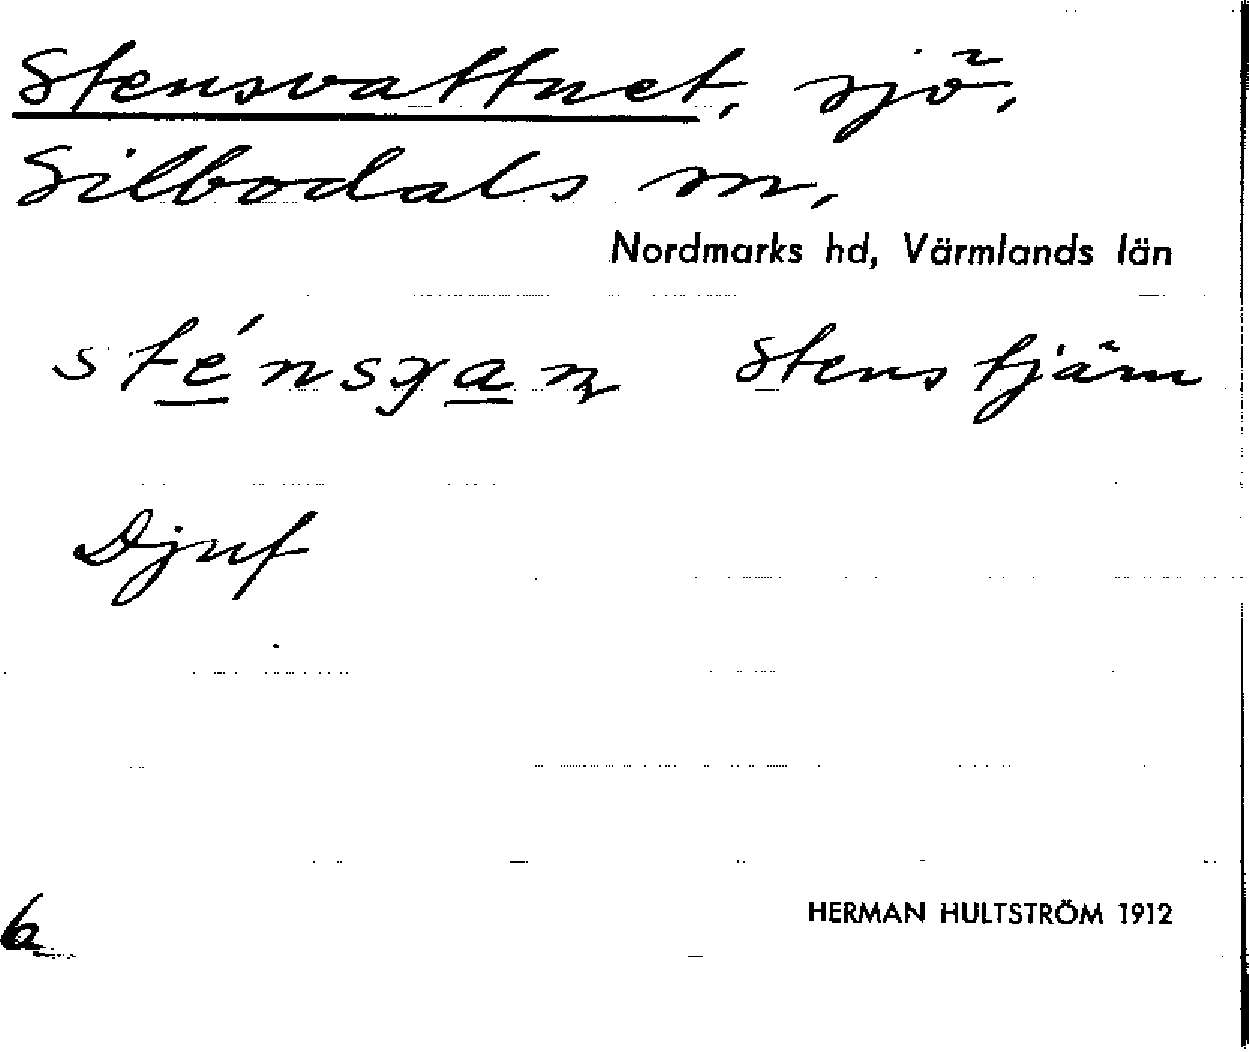 Stensvattnet, sjö,
Silbodals sn,
Nordmarks hd, Värmlands län
Stenstjärn
Djup
HERMAN HULTSTRÖM 1912